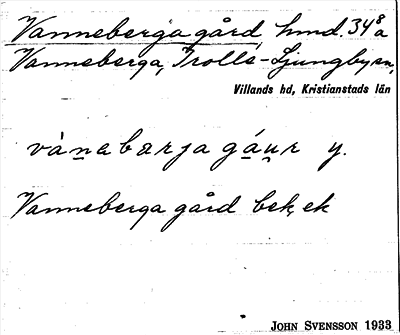 Vanneberga gård, hmd. 34⁸a
Vanneberga, Trolle-Ljungby sn,
Villands hd, Kristianstads län
vànabærja gáur y.
Vanneberga gård bek, ek
JOHN SVENSSON 1933